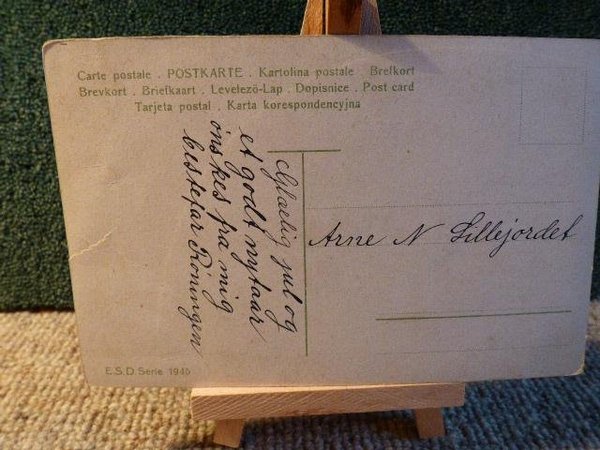 Carte postale . POSTKARTE . Kartolina postale . Brefkort
Brevkort . Briefkaart . Levelezö-Lap . Dopisnice . Post card
Tarjeta postal . Karta korespondencyjna
Glædelig jul og
et godt nytaar
önskes fra mig
bestefar Röningen
Arne N Lillejordet
E.S.D. Serie 1945